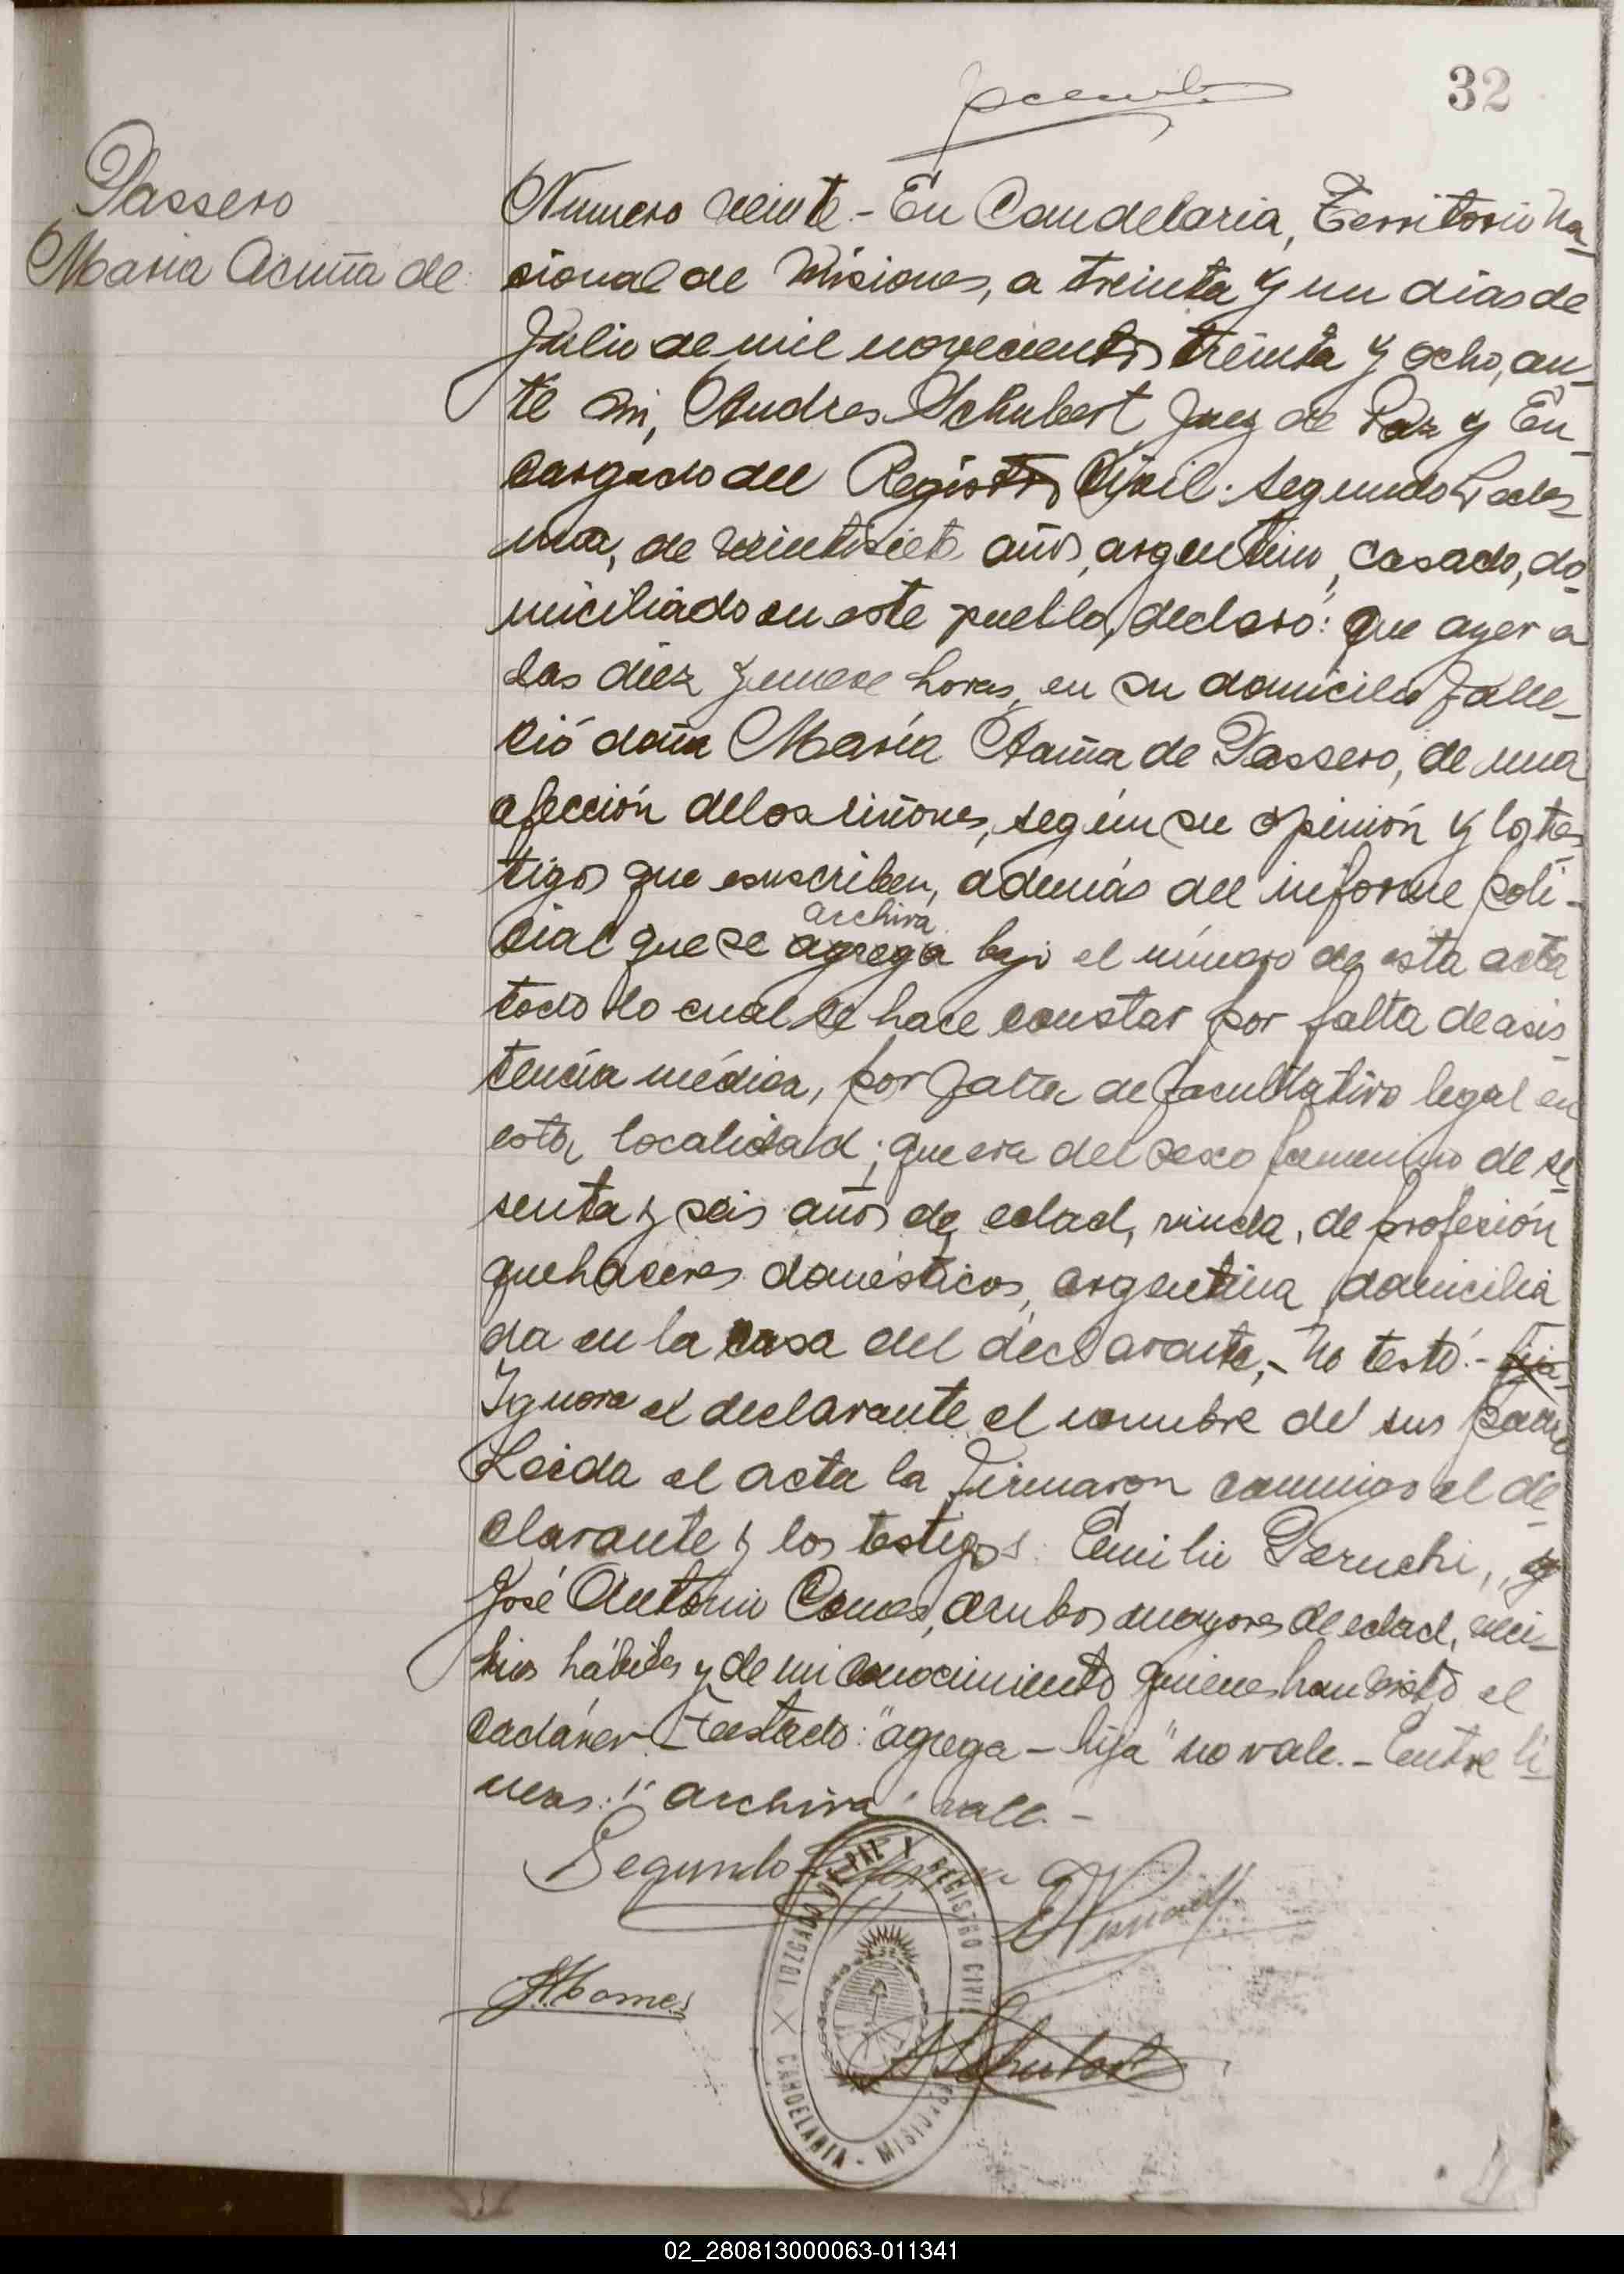 32
Passero
Maria Acuña de
Numero veinte.- En Candelaria, Territorio Na-
cional de Misiones, a treinta y un dias de
Julio de mil novecientos treinta y ocho, an-
te mi, Andres Schubert Juez de Paz y En-
cargado del Registro Civil: Segundo Ledes
ma, de veintisiete años, argentino, casado, do-
miciliado en este pueblo, declaró: que ayer a
las diez y nueve horas, en su domicilio falle-
ció doña María Acuña de Passero, de una
afección de los riñones, según su opinión y los tes-
tigos que suscriben, además del informe poli-
archiva
cial que se agrega bajo el número de esta acta
todo lo cual se hace constar por falta de asis-
tencia médica, por falta de facultativo legal en
esta localidad; que era del sexo femenino de se-
senta y seis años de edad, viuda, de profesión
quehaceres domésticos, argentina, domicilia
da en la casa del declarante,- No testó.- hija
Ignora el declarante el nombre de sus padres
Leida el acta la firmaron conmigo el de-
clarante y los testigos Emilio Peruchi, y
José Antonio Comes, ambos mayores de edad, veci-
nos hábiles y de mi conocimiento quienes han visto el
cadáver.- Testado: "agrega - hija" no vale.- Entre li-
neas: "archiva" vale.-
Segundo Ledesma
JAComes
ASchubert
JUZGADO DE PAZ Y REGISTRO CIVIL
CANDELARIA - MISIONES
02_280813000063-011341